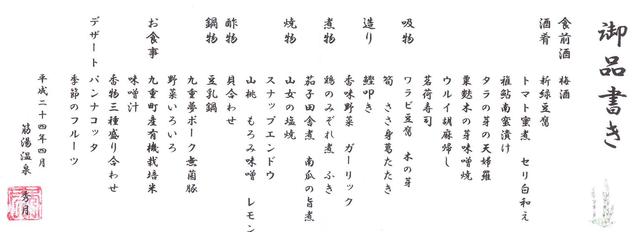 御品書き
食前酒 梅酒
酒肴 新緑豆腐
トマト蜜煮 セリ白和え
稚鮎南蛮漬け
タラの芽の天婦羅
粟麩木の芽味噌焼
ウルイ胡麻浸し
茗荷寿司
吸物 ワラビ豆腐 木の芽
筍 ささ身葛たたき
造り 鰹叩き
香味野菜 ガーリック
煮物 鶏のみぞれ煮 ふき
茄子田舎煮 南瓜の旨煮
焼物 山女の塩焼
スナップエンドウ
山桃 もろみ味噌 レモン
酢物 貝合わせ
鍋物 豆乳鍋
九重夢ポーク無菌豚
野菜いろいろ
お食事 九重町産有機栽培米
味噌汁
香物三種盛り合わせ
デザート パンナコッタ
季節のフルーツ
平成二十四年四月
筋湯温泉 秀月